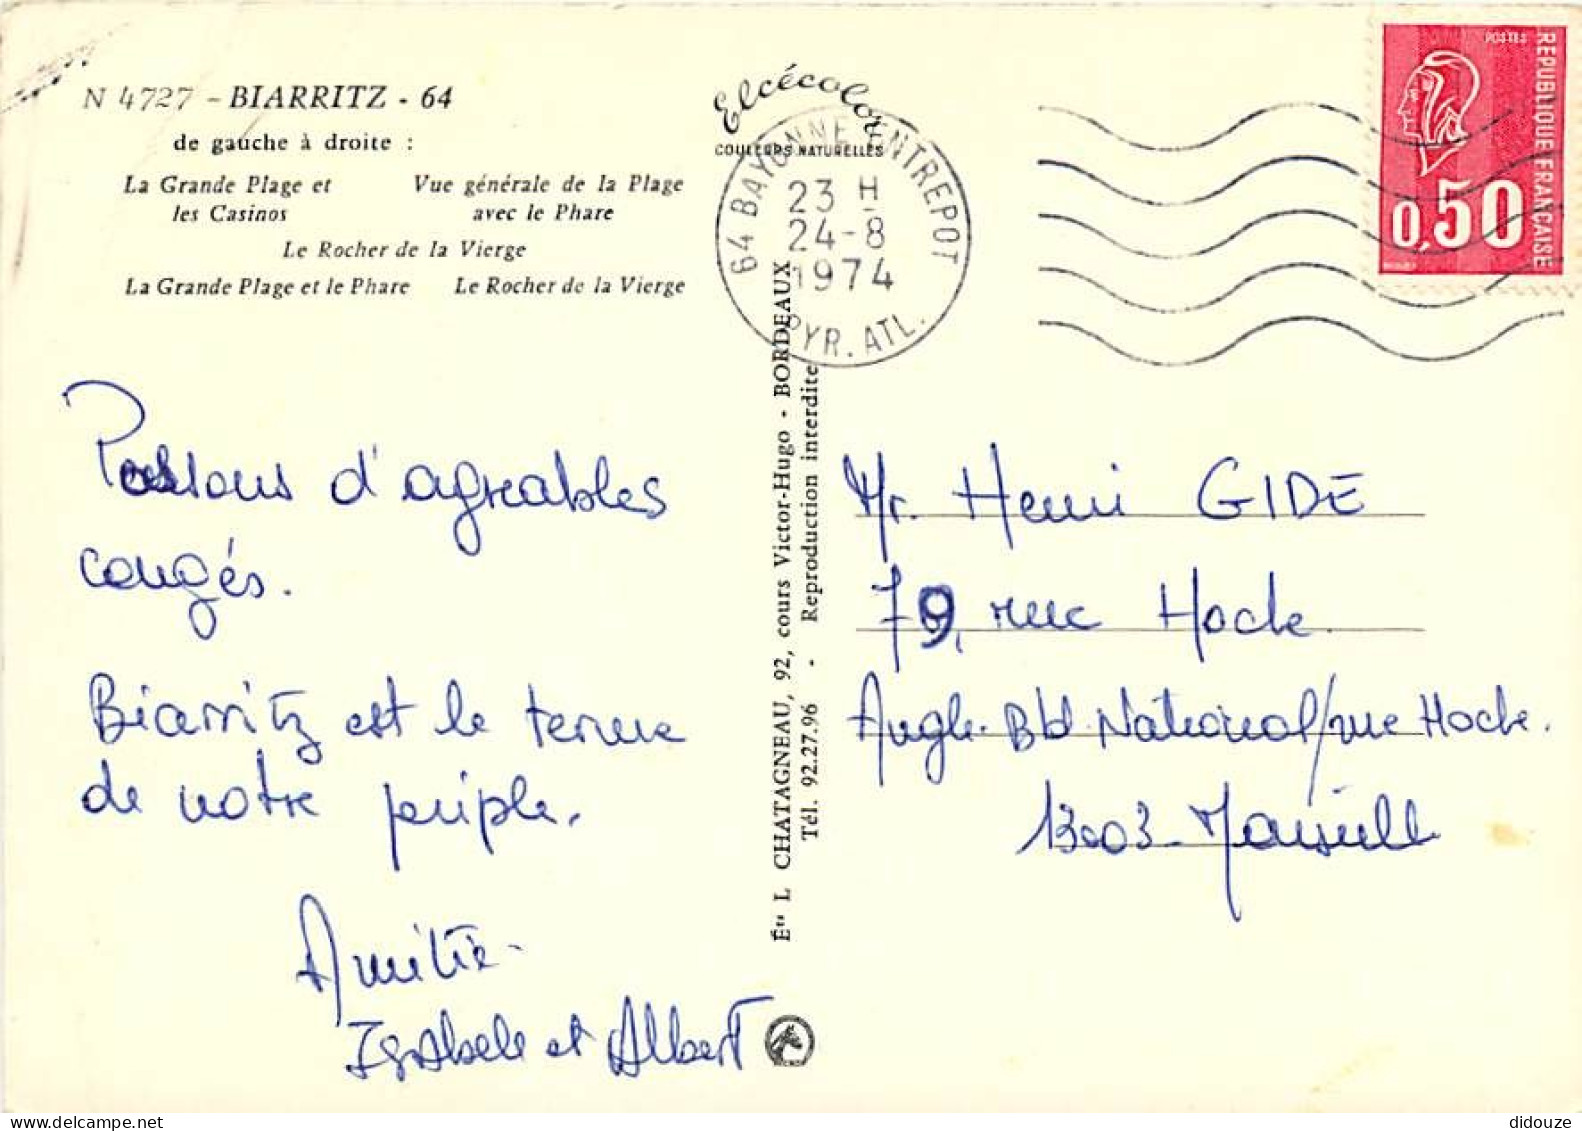 N 4727 - BIARRITZ - 64
de gauche à droite :
La Grande Plage et
les Casinos
Vue générale de la Plage
avec le Phare
Le Rocher de la Vierge
La Grande Plage et le Phare
Le Rocher de la Vierge
Elcécolor
COULEURS NATURELLES
64 BAYONNE ENTREPOT
23 H
24-8
1974
PYR. ATL.
POSTES
REPUBLIQUE FRANÇAISE
0,50
Passons d'agreables
congés.
Biarritz est le terme
de notre périple.
Amitié.
Isabelle et Albert
Éts L CHATAGNEAU, 92, cours Victor-Hugo - BORDEAUX
Tél. 92.27.96 - Reproduction interdite
Mr. Henri GIDE
79, rue Hoche
Angle Bld National/rue Hoche.
13003 - Marseille
didouze